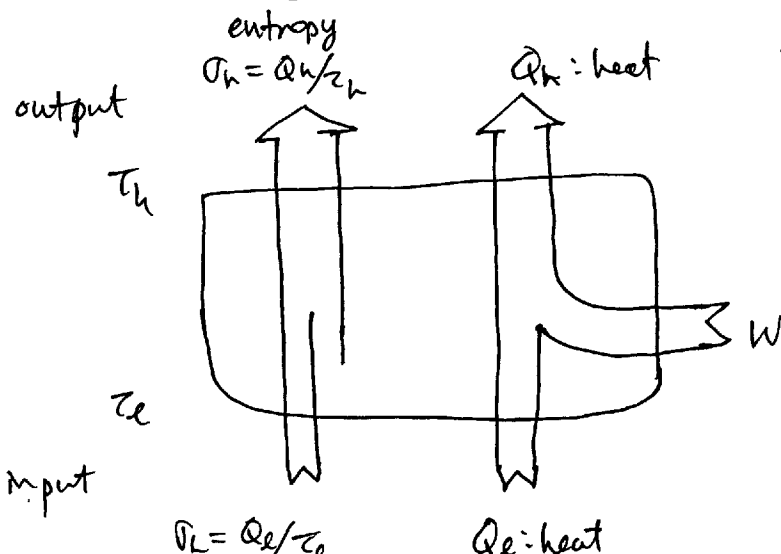 entropy
σh = Qh/τh
Qh : heat
output
τh
W
τl
input
σL = Ql/τl
Ql : heat